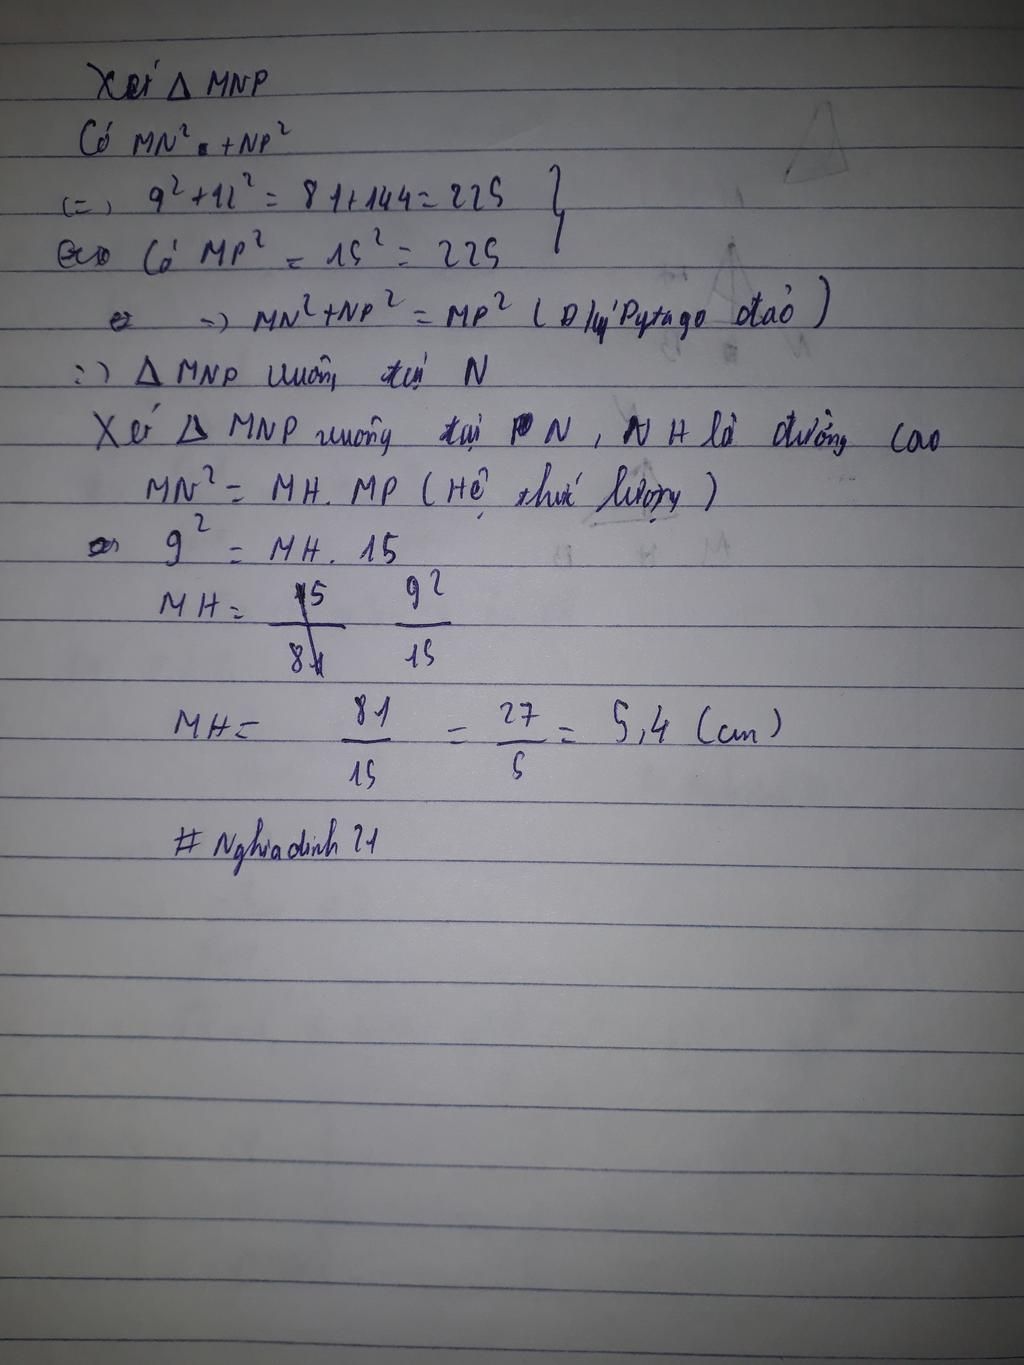 Xét Δ MNP
Có MN² + NP²
(=) 9² + 12² = 81 + 144 = 225 }
Có MP² = 15² = 225
=) MN² + NP² = MP² ( Đ lý Pytago đảo )
=) Δ MNP vuông tại N
Xét Δ MNP vuông tại N , NH là đường cao
MN² = MH . MP ( Hệ thức lượng )
9² = MH . 15
MH = 9² / 15
MH = 81 / 15 = 27 / 5 = 5,4 (cm)
# Nghiadinh 21